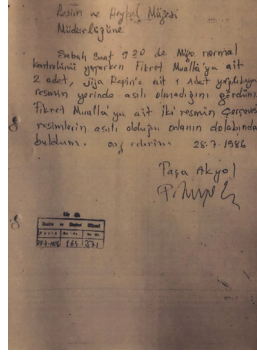 Resim ve Heykel Müzesi
Müdürlüğüne
Sabah Saat 9.30 da Müze normal
kontrolünü yaparken Fikret Mualla'ya ait
2 adet, ait 1 adet
resmin yerinde asılı olmadığını gördüm.
Fikret Mualla'ya ait iki resmin çerçevesi
resimlerin asılı olduğu salonun dolabında
buldum. arz ederim 28.7.1986
Paşa Akyol
Resim ve Heykel Müzesi